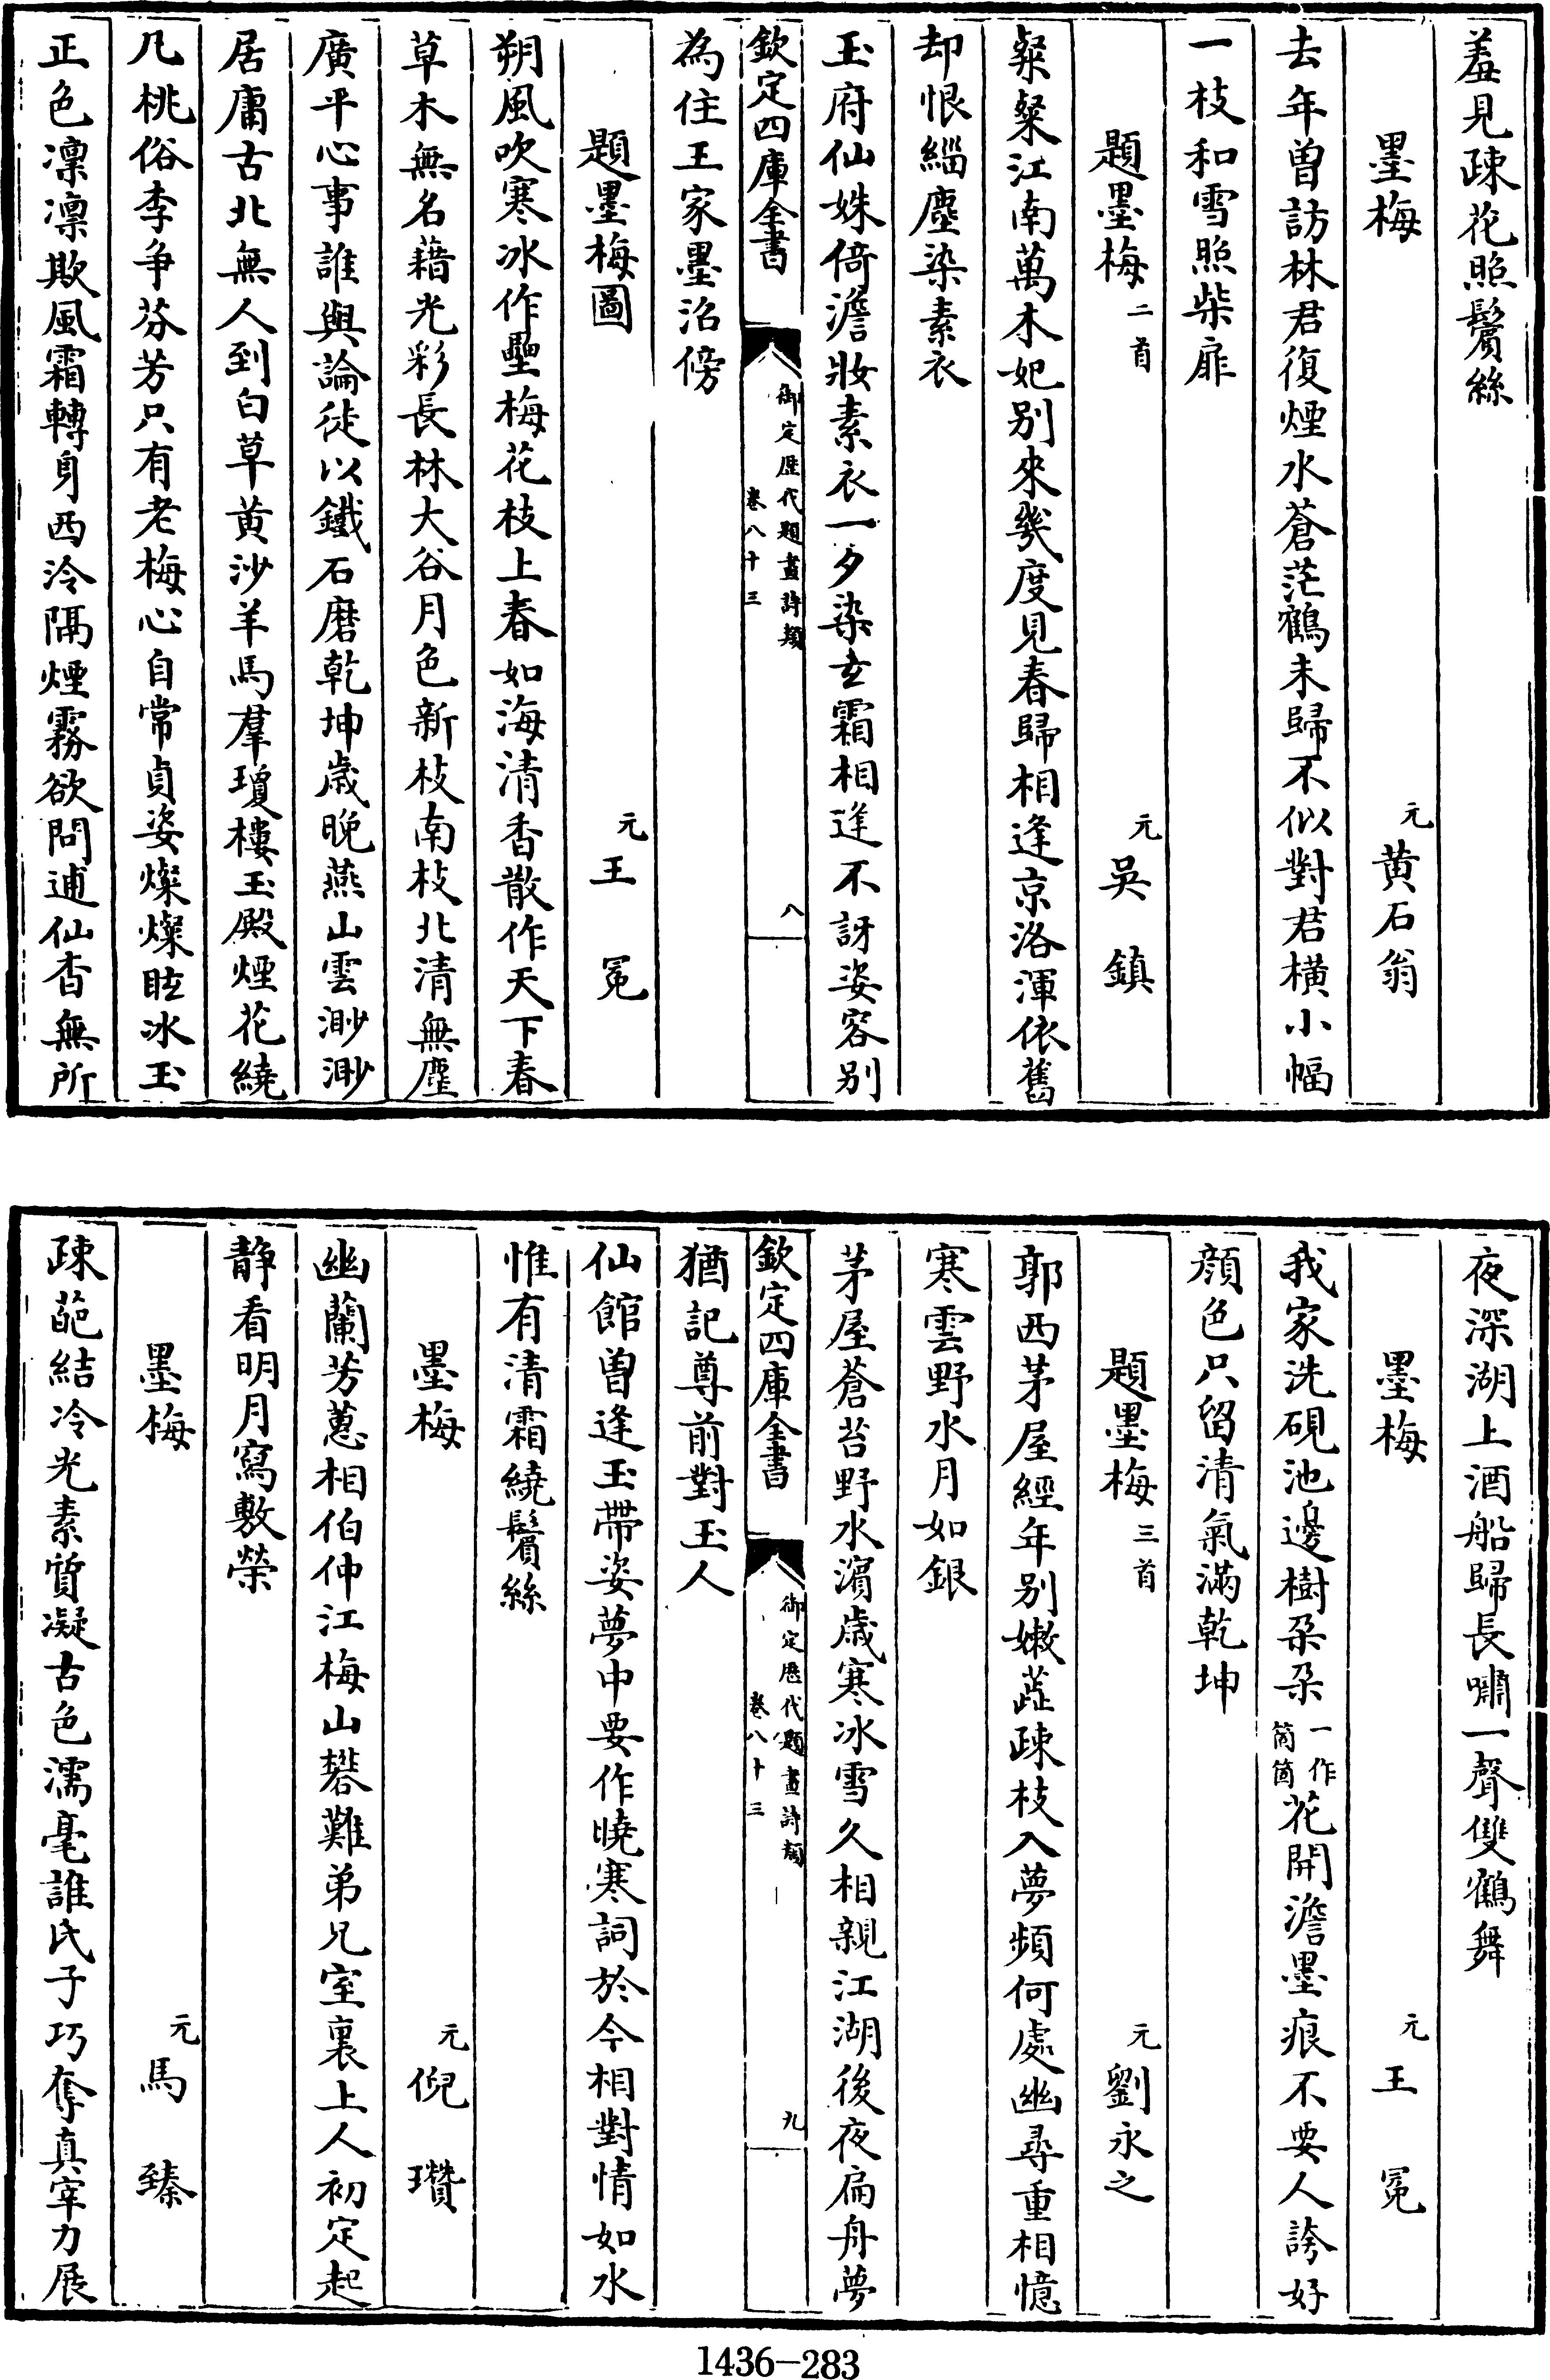 羞見疎花照鬢絲
墨梅　元黄石翁
去年曽訪林君復煙水蒼茫鶴未歸不似對君横小幅
一枝和雪照柴扉
題墨梅二首　元吳鎮
粲粲江南萬木妃别來幾度見春歸相逢京洛渾依舊
却恨緇塵染素衣
玉府仙姝倚澹妝素衣一夕染玄霜相逢不訝姿容别
欽定四庫全書　御定歴代題畫詩類　卷八十三　八
為住王家墨沼傍
題墨梅圖　元王冕
朔風吹寒冰作壘梅花枝上春如海清香散作天下春
草木無名藉光彩長林大谷月色新枝南枝北清無塵
廣平心事誰與論徒以鐵石磨乾坤歳晚燕山雲渺渺
居庸古北無人到白草黄沙羊馬羣瓊樓玉殿煙花繞
凡桃俗李争芬芳只有老梅心自常貞姿燦燦眩冰玉
正色凛凛欺風霜轉身西泠隔煙霧欲問逋仙杳無所
夜深湖上酒船歸長嘯一聲雙鶴舞
墨梅　元王冕
我家洗硯池邊樹朶朶一作箇箇花開澹墨痕不要人誇好
顔色只留清氣滿乾坤
題墨梅三首　元劉永之
郭西茅屋經年别嫩蕋疎枝入夢頻何處幽尋重相憶
寒雲野水月如銀
茅屋蒼苔野水濵歳寒冰雪久相親江湖後夜扁舟夢
欽定四庫全書　御定歴代題畫詩類　卷八十三　九
猶記尊前對玉人
仙館曽逢玉帶姿夢中要作曉寒詞於今相對情如水
惟有清霜繞鬢絲
墨梅　元倪瓚
幽蘭芳蕙相伯仲江梅山礬難弟兄室裏上人初定起
静看明月寫敷榮
墨梅　元馬臻
疎葩結冷光素質凝古色濡毫誰氏子巧奪真宰力展
1436-283